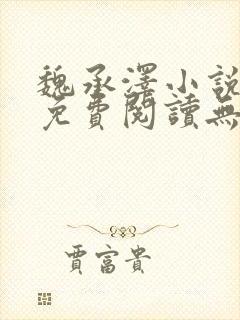 魏承澤小說
免費閱讀無
賈富貴